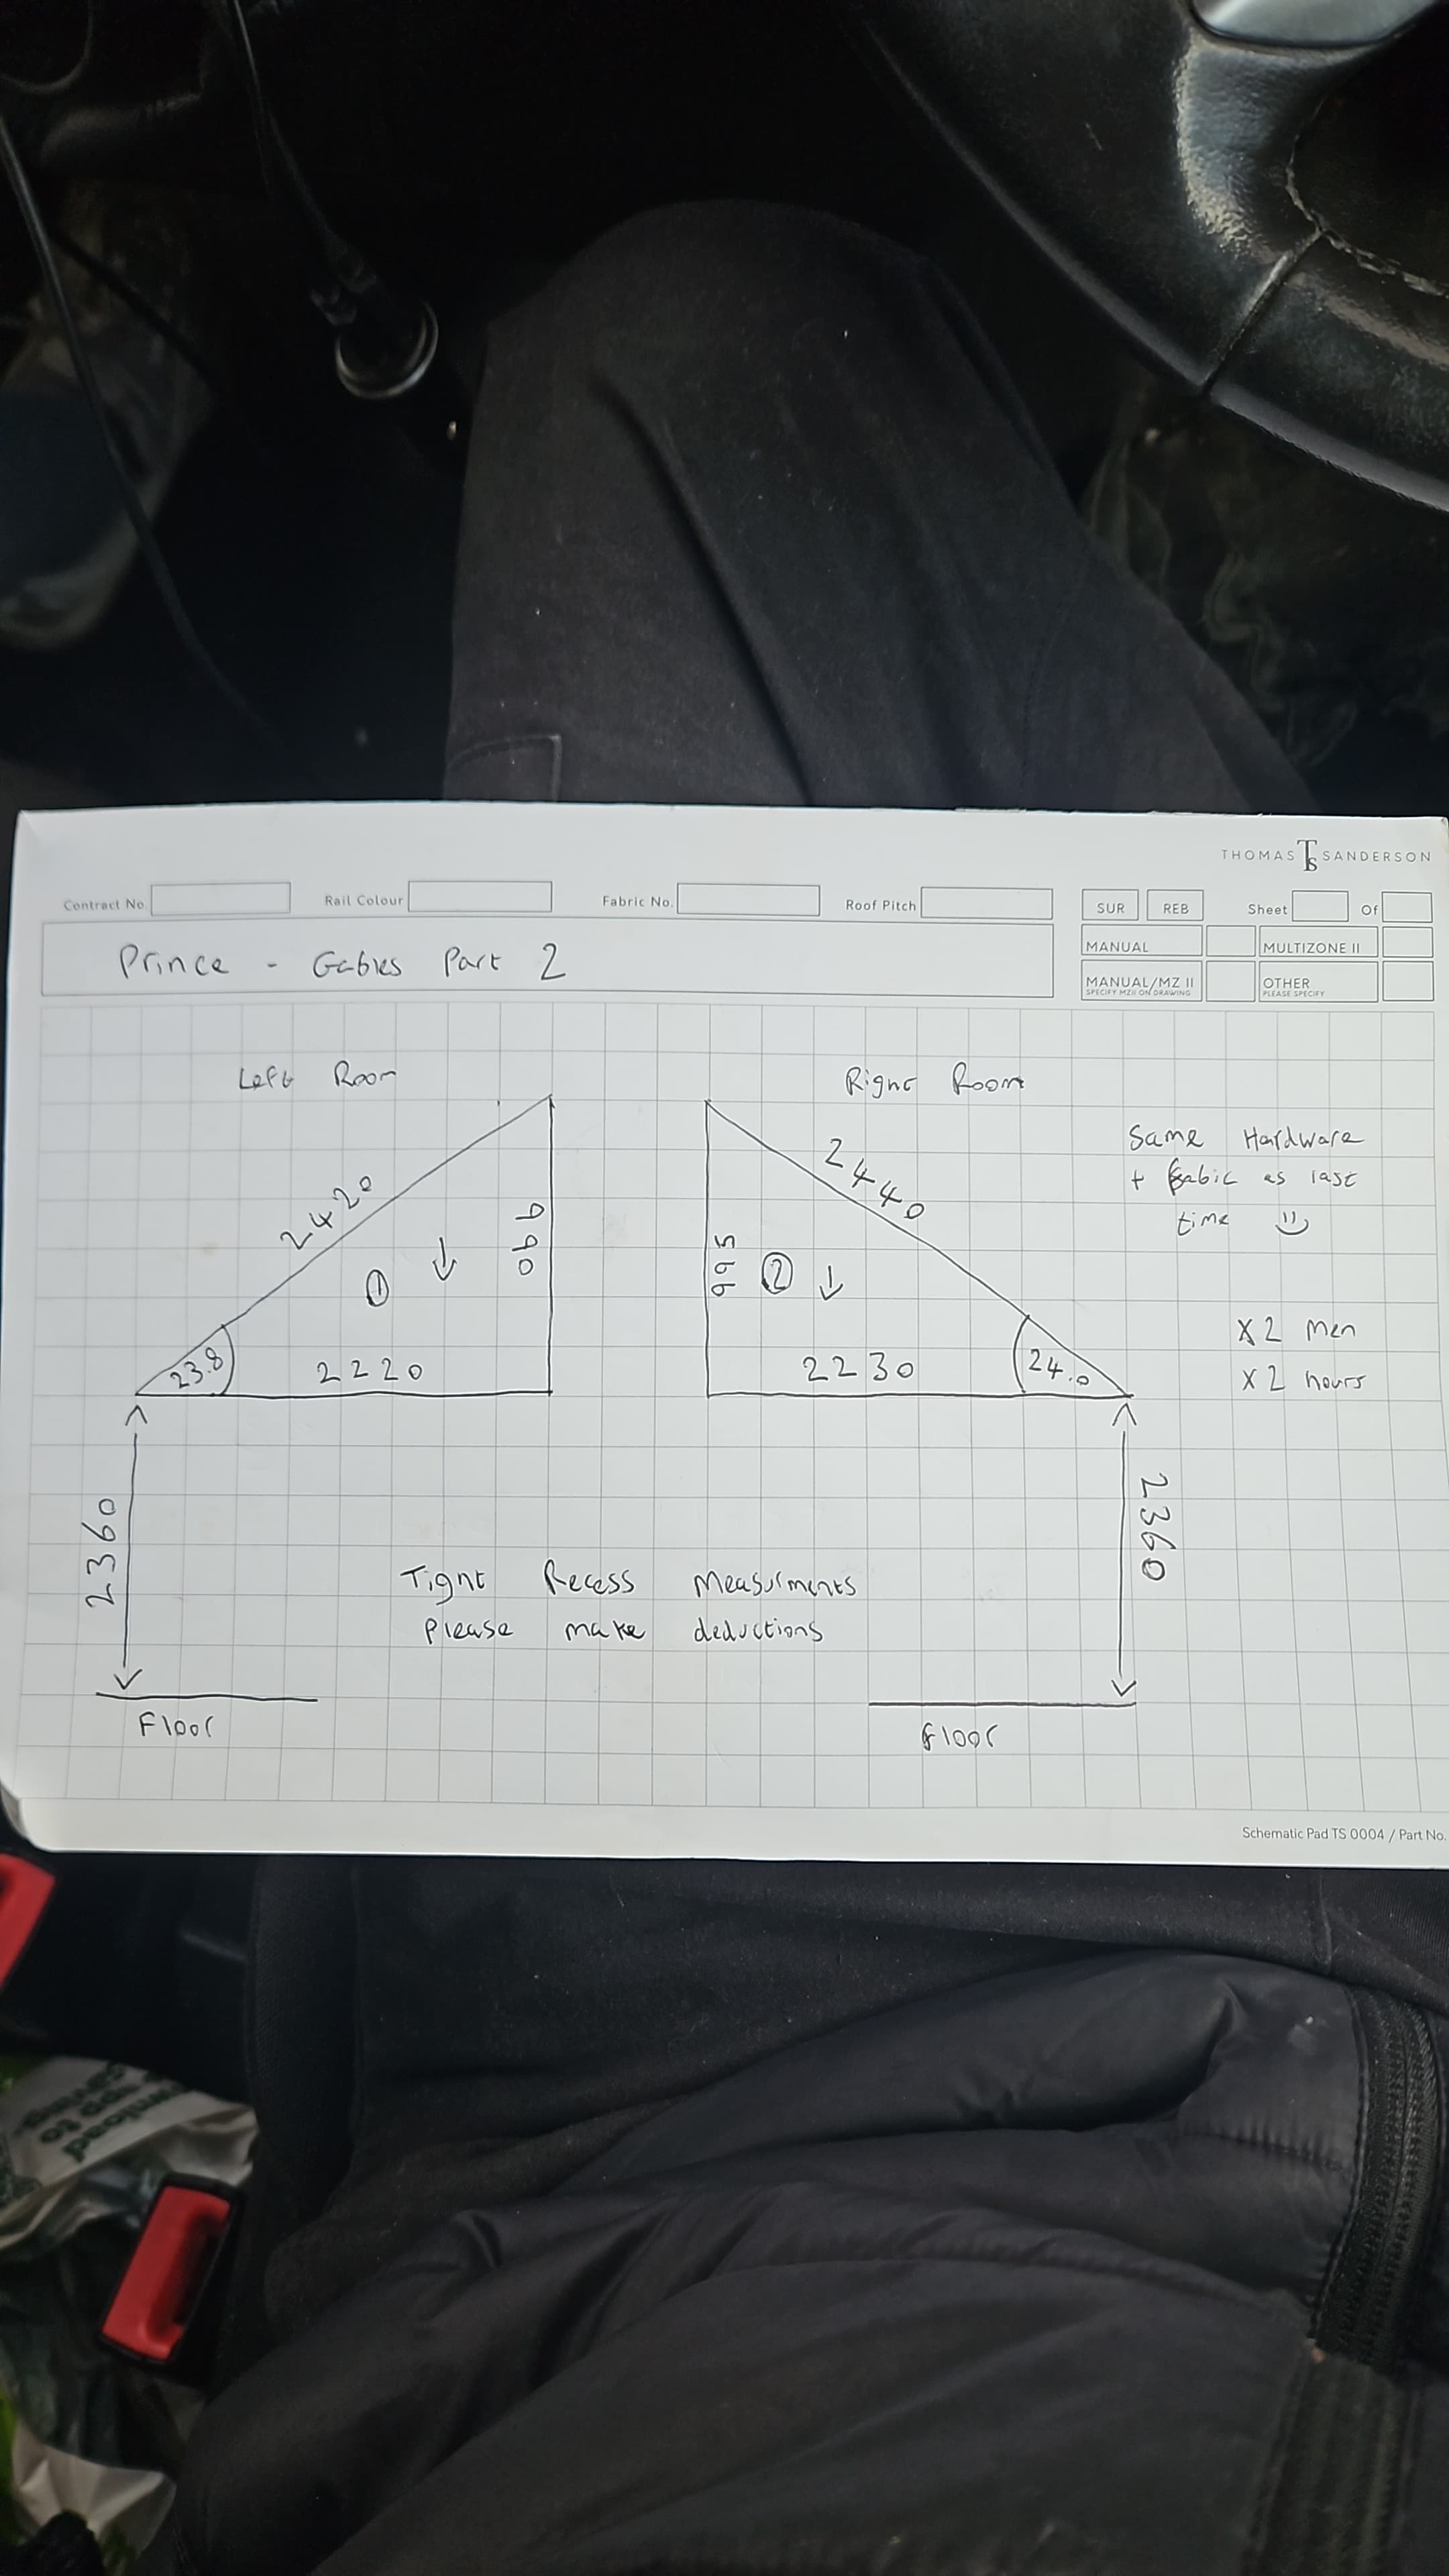 THOMAS TS SANDERSON
Contract No.
Rail Colour
Fabric No.
Roof Pitch
SUR
REB
Sheet
Of
MANUAL
MULTIZONE II
MANUAL/MZ II
SPECIFY MZII ON DRAWING
OTHER
PLEASE SPECIFY
Prince - Gables Part 2
Left Room
2420
990
1
23.8
2220
2360
Floor
Right Room
2440
995
2
2230
24.0
2360
Floor
Same Hardware
+ Fabic as last
time
X2 Men
X2 hours
Tight Recess Measurments
Please make deductions
Schematic Pad TS 0004 / Part No.